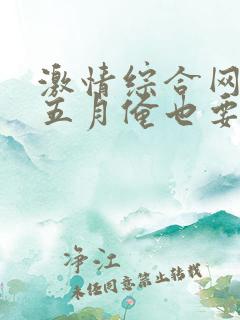 激情综合网
五月俺也要
净江
未经同意禁止转载